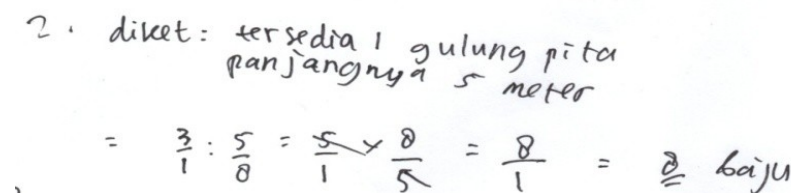 2. diket: tersedia 1 gulung pita
panjangnya 5 meter
= 3/1 : 5/8 = 5/1 × 8/5 = 8/1 = 8 baju